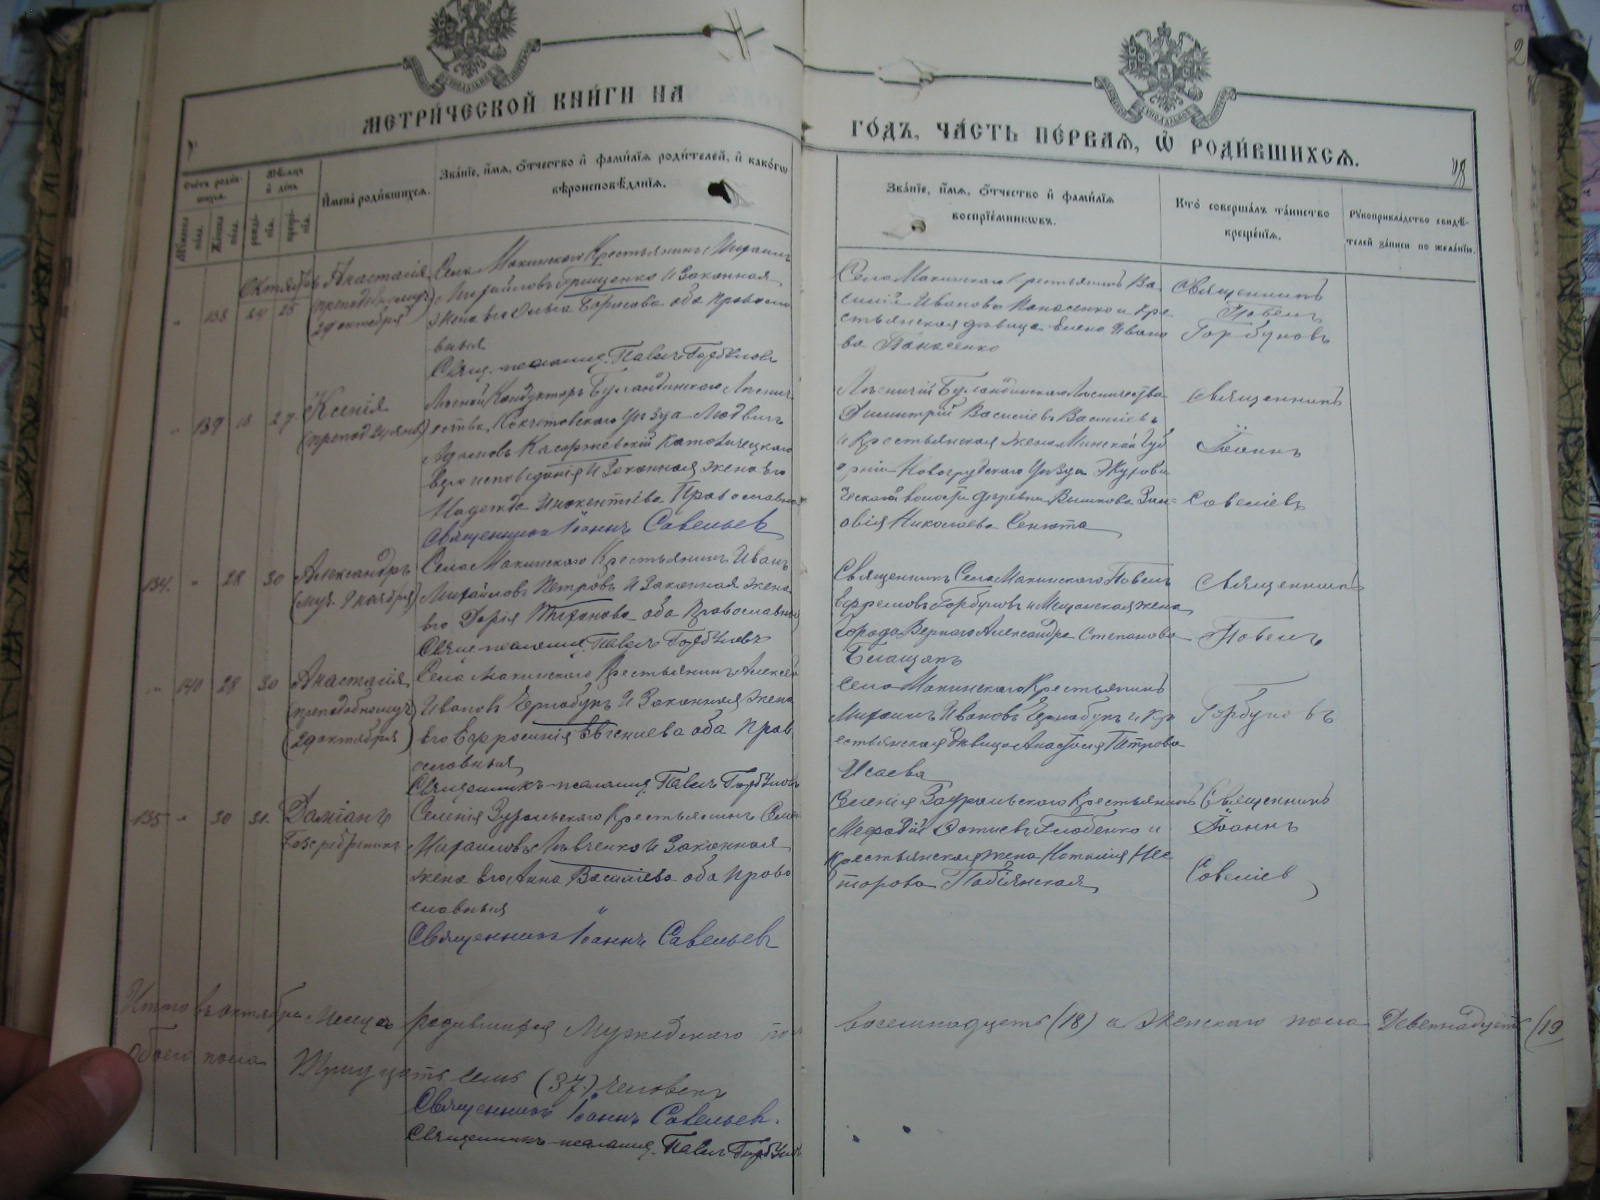 МЕТРИ́ЧЕСКОЙ КНИ́ГИ НА
ГО́ДЪ, ЧА́СТЬ ПЕ́РВАЯ, Ѡ҆ РОДИ́ВШИХСЯ.
Счётъ роди́вшихся.
Мѣсяцъ и день
И҆мена̀ роди́вшихся.
Зва́нїе, и҆́мя, ѻ҆́тчество и҆ фами́лїя роди́телей, и҆ како́гѡ
вѣроисповѣ́данїя.
Зва́нїе, и҆́мя, ѻ҆́тчество и҆ фами́лїя
воспрїе́мникѡвъ.
Кто̀ соверша́лъ та́инство
креще́нїя.
Рꙋкоприкла́дство свидѣ́-
телей за́писи по жела́нїю.
138 24 25
Октябрь Анастасія
преподобномуч.
29 октября
Села Макинскаго Крестьянинъ Михаилъ
Михайловъ Грищенко и Законная
жена его Ольга Борисова оба Православныя
Свящ. Павелъ Горбуновъ
Села Макинскаго Крестьянинъ Ва-
силій Ивановъ Панасенко и Кре-
стьянская дѣвица Елена Ивано
ва Панасенко
Священникъ
Павелъ
Горбуновъ
139 18 27
Ксенія
Лѣсной Кондукторъ Буландинскаго Лѣснич
ества, Кокчетовскаго уѣзда Людвигъ
Адамовъ Касаржевскій Католическаго
вероисповѣданія и Законная жена его
Надежда Инокентіева Православная
Священникъ Іоаннъ Савельевъ
Лѣсничій Буландинскаго Лѣсничества
Димитрій Василіевъ Василіевъ
и Крестьянская жена Минской Губ
ерніи Новогрудскаго уѣзда
волости деревни Зин-
овія Николаева Сенюта
Священникъ
Іоаннъ
Савеліевъ
134. 28 30
Александръ
(муч. 9 ноября)
Села Макинскаго Крестьянинъ Иванъ
Михайловъ Петровъ и Законная жена
его Дарія оба Православныя
Павелъ Горбуновъ
Священникъ Села Макинскаго Павелъ
Ефремовъ Горбуновъ и Мѣщанская жена
города Вернаго Александра Степанова
Священникъ
Павелъ
Горбуновъ
140 28 30
Анастасія
(преподобномуч
(29 октября)
Села Макинскаго Крестьянинъ Алексѣй
Ивановъ Чернобукъ и Законная жена
его Ефросинія Евгеніева оба Прав
ославныя
Священникъ Павелъ Горбуновъ
Села Макинскаго Крестьянинъ
Михаилъ Ивановъ Чернобукъ и Кр
естьянская дѣвица Анастасія Петрова
Исаева
135 30 31.
Даміанъ
Безсребреникъ
Селенія Крестьянинъ
Михаиловъ Левченко и Законная
жена его Анна Василіева оба Право
славныя
Священникъ Іоаннъ Савельевъ
Селенія Крестьянинъ
Мефодій Фотіевъ и
Крестьянская жена Наталія Нес
торова
Священникъ
Іоаннъ
Савеліевъ
Итого въ октябрѣ Мѣсяцѣ родившихся Мужескаго пола восемнадцать (18) а Женскаго пола Девятнадцать (19
Обоего пола Тридцать семь (37.) Человекъ
Священникъ Іоаннъ Савельевъ.
Священникъ Павелъ Горбуновъ